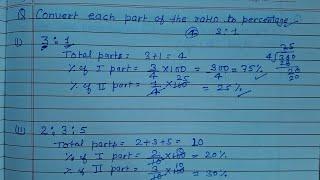 Q Convert each part of the ratio to percentage.
④ 3:1
(i) 3 : 1
Total parts = 3+1 = 4
% of I part = 3/4 × 100 = 300/4 = 75%
% of II part = 1/4 × 100 25 = 25%
75
4 300
28
20
20
(ii) 2 : 3 : 5
Total parts = 2+3+5 = 10
% of I part = 2/10 × 100 10 = 20%
% of II part = 3/10 × 100 10 = 30%